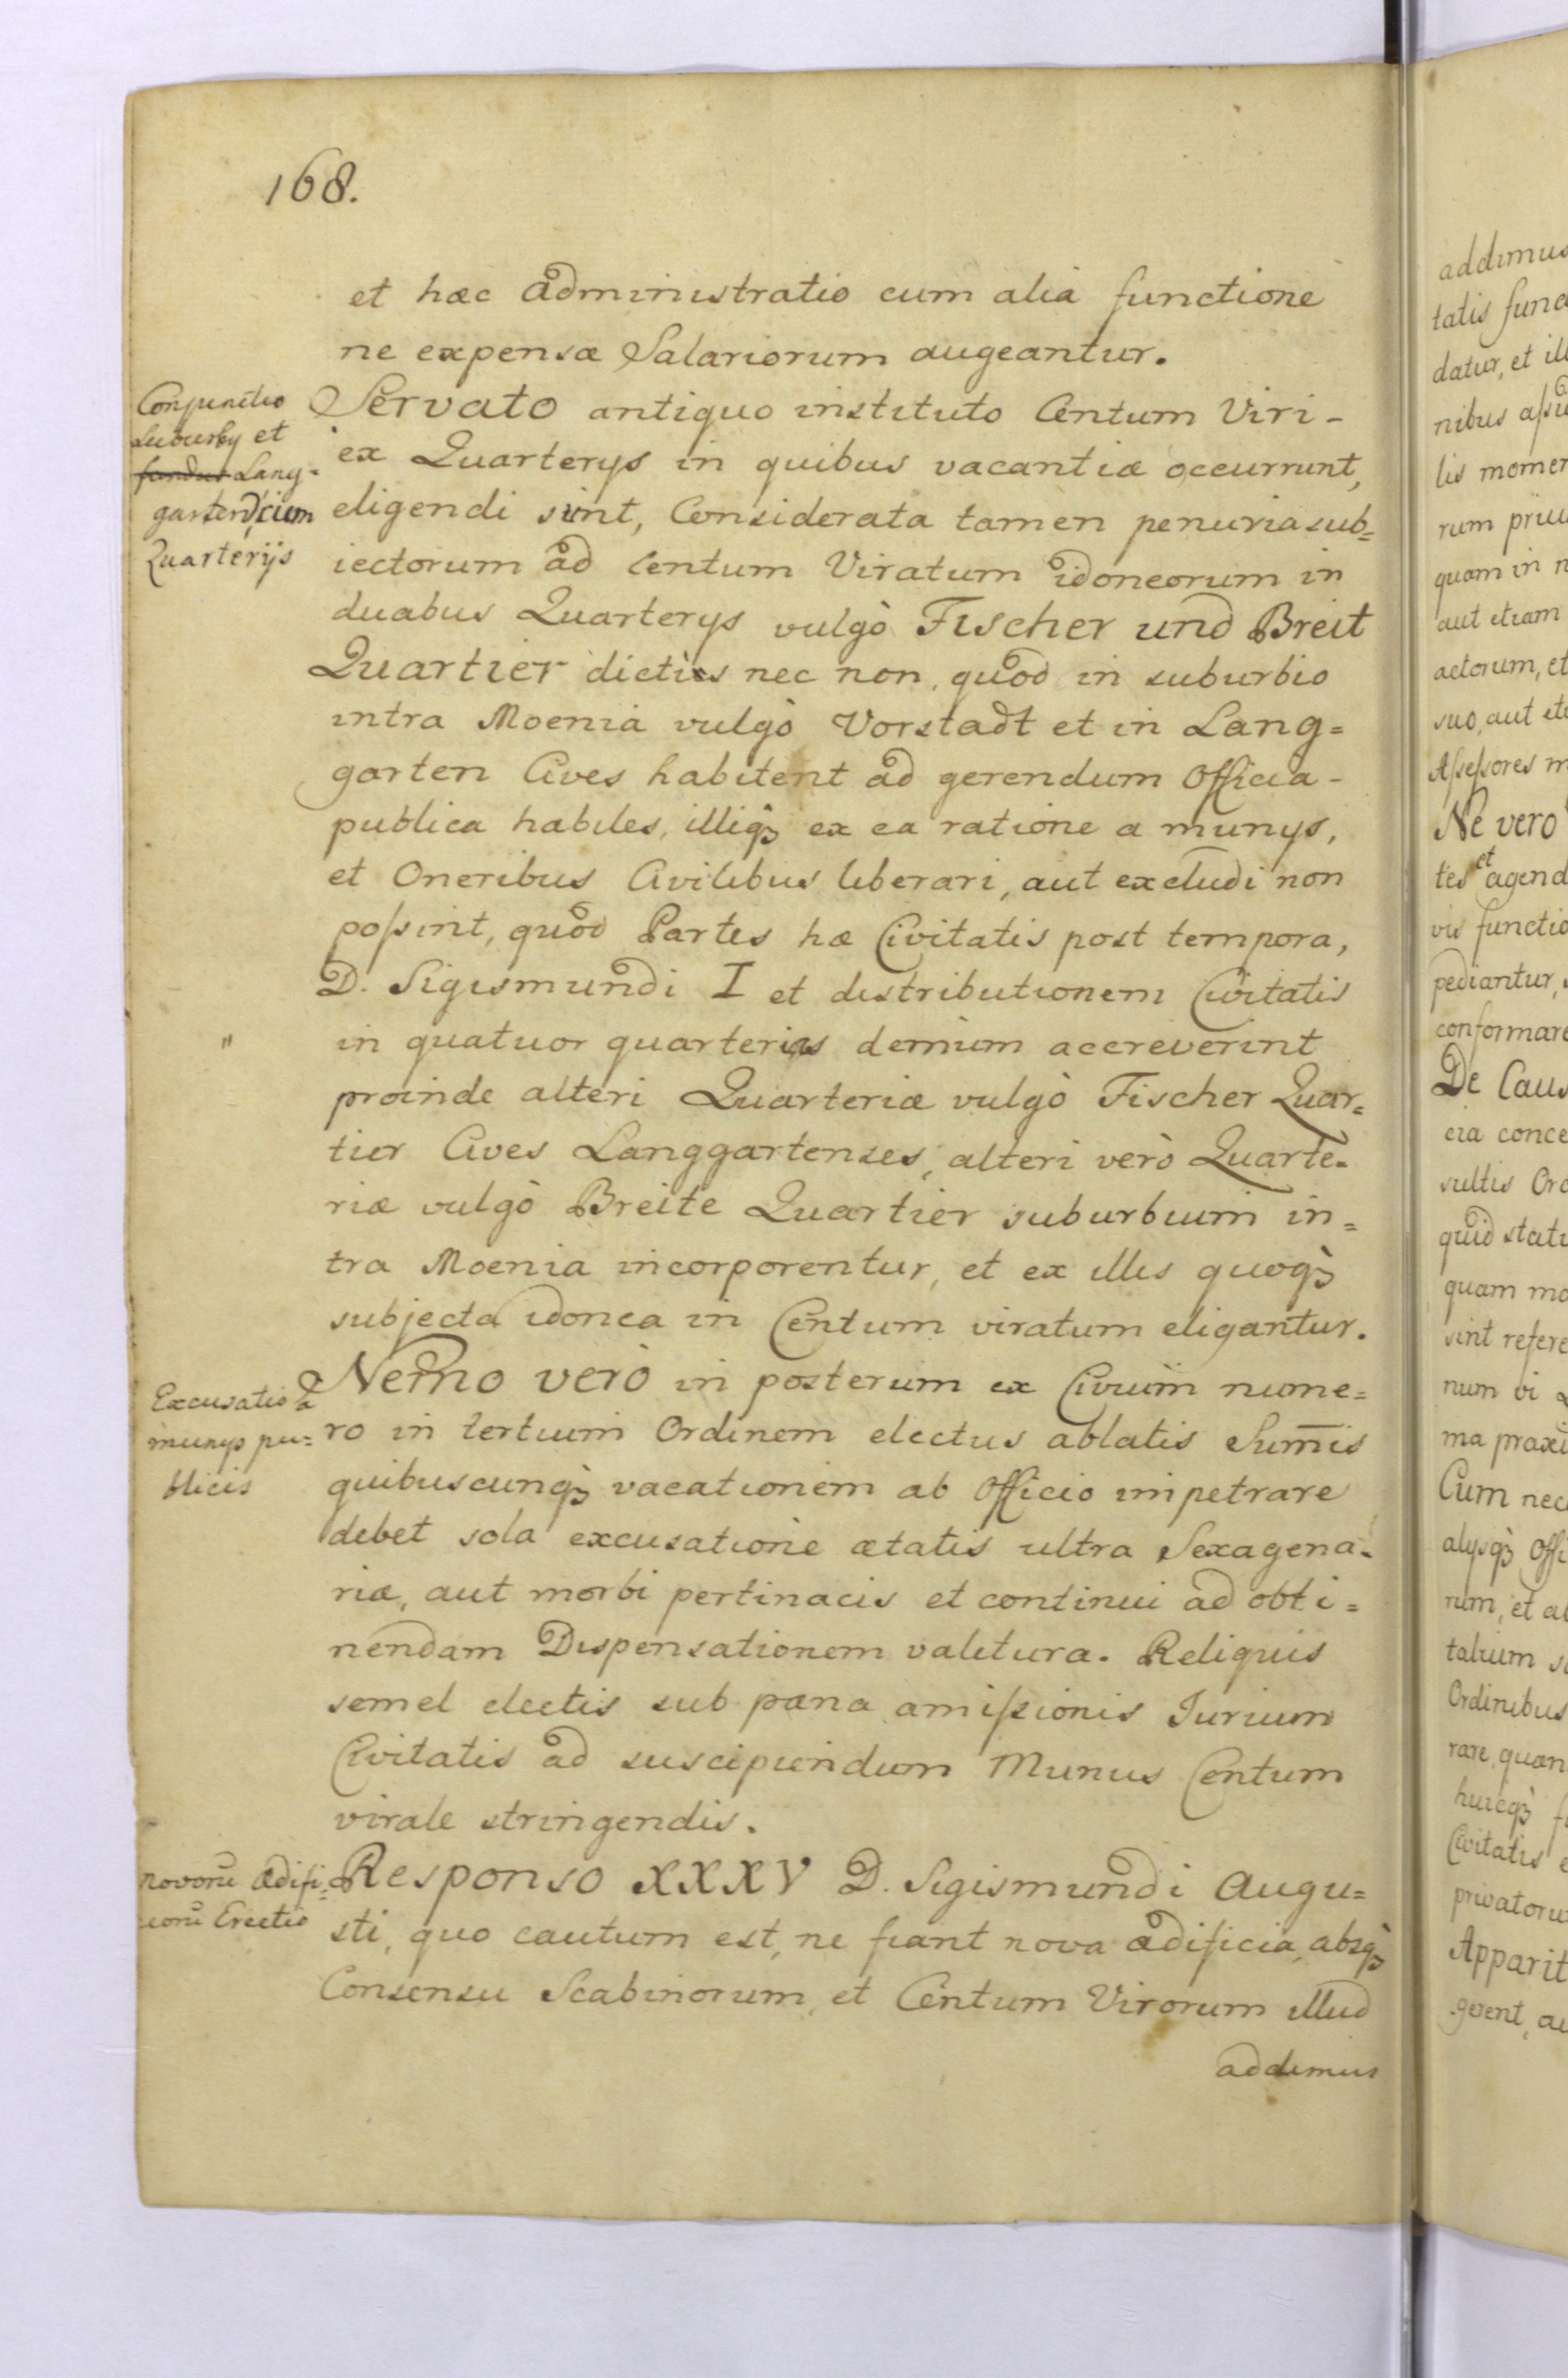 168.
et hæc administratio cum alia functione
ne expensæ Salariorum augeantur.
Conjunctio
Suburby et
fundus Lang=
garten cum
Quarterijs
Servato antiquo instituto Centum Viri-
ex Quarterys in quibus vacantiæ occurrunt,
eligendi sint, Considerata tamen penuria sub=
iectorum ad Centum Viratum idoneorum in
duabus Quarterys vulgò Fischer und Breit
Quartier dictis nec non, quod in suburbio
intra Moenia vulgò Vorstadt et in Lang=
garten Cives habitent ad gerendum Officia-
publica habiles, illiq3 ex ea ratione a munys,
et Oneribus Civilibus liberari, aut excludi non
poſsint, quod Partes hæ Civitatis post tempora,
D. Sigismundi I et distributionem Civitatis
"
in quatuor quarterias demum accreverint
proinde alteri Quarteriæ vulgò Fischer Quar=
tier Cives Langgartenses, alteri verò Quarte=
riæ vulgò Breite Quartier suburbium in=
tra Moenia incorporentur, et ex illis quoq3
subjecta idonea in Centum viratum eligantur.
Excusatio a
munys pu=
blicis
Nemo verò in posterum ex Civium nume=
ro in tertium Ordinem electus ablatis Sum̄is
quibuscunq3 vacationem ab Officio impetrare
debet sola excusatione ætatis ultra Sexagena=
riæ, aut morbi pertinacis et continui ad obti=
nendam Dispensationem valitura. Reliquis
semel electis sub pæna amiſsionis Iurium
Civitatis ad suscipiendum Munus Centum
virale stringendis.
novorū Ædifi=
ciorū Erectio
Responso XXXV D. Sigismundi Augu=
sti, quo cautum est, ne fiant nova ædificia, absq3
Consensu Scabinorum, et Centum Virorum illud
addimus
addimus
tatis func
datur, et ill
nibus
lis momen
rum
quam in n
aut etiam
actorum, et
suo, aut
Aſseſsores m
Ne vero
tes et agend
vis functio
pediantur,
conformare
De Caus
cia conce
sultis Ord
quid statu
quam mo
sint refere
num vi
ma praxi
Cum nec
alysq3 Offi
rum, et al
talium
Ordinibus
rare, quan
huicq3
Civitatis
privatoru
Apparit
gerent, au